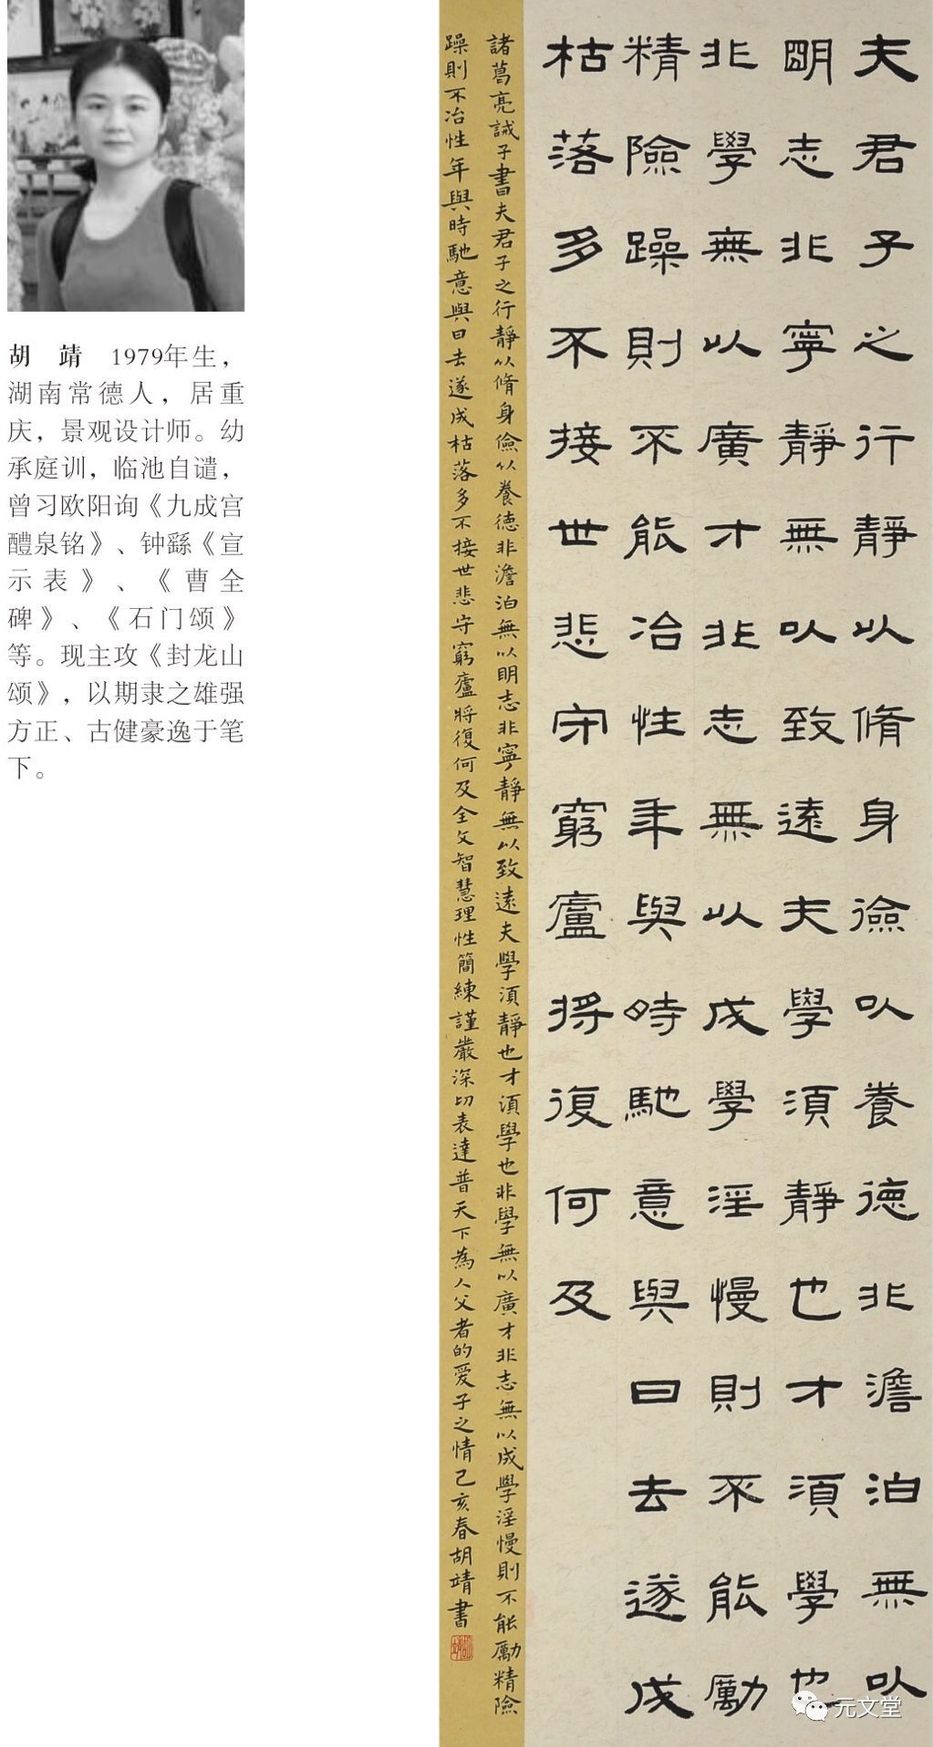 胡 靖 1979年生，
湖南常德人，居重
庆，景观设计师。幼
承庭训，临池自谴，
曾习欧阳询《九成宫
醴泉铭》、钟繇《宣
示表》、《曹全
碑》、《石门颂》
等。现主攻《封龙山
颂》，以期隶之雄强
方正、古健豪逸于笔
下。
夫君子之行靜以脩身儉以養德非澹泊無以
明志非寧靜無以致遠夫學須靜也才須學也
非學無以廣才非志無以成學淫慢則不能勵
精險躁則不能冶性年與時馳意與日去遂成
枯落多不接世悲守窮廬將復何及
諸葛亮誡子書夫君子之行靜以脩身儉以養德非澹泊無以明志非寧靜無以致遠夫學須靜也才須學也非學無以廣才非志無以成學淫慢則不能勵精險
躁則不冶性年與時馳意與日去遂成枯落多不接世悲守窮廬將復何及全文智慧理性簡練謹嚴深切表達普天下為人父者的爱子之情己亥春胡靖書
元文堂